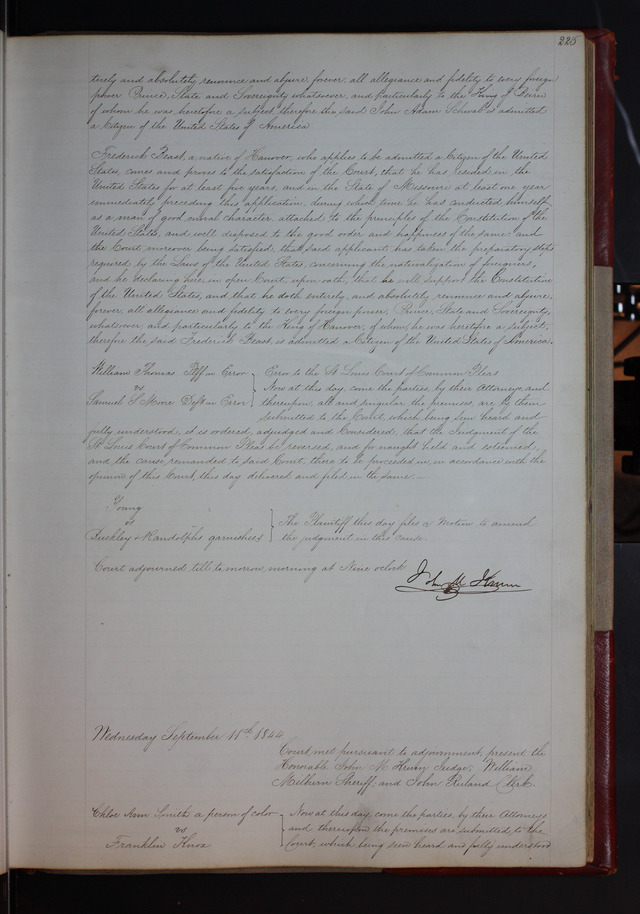 225
tirely and absolutely renounce and abjure forever, all allegiance and fidelity to every foreign
power Prince, State and Sovereignty whatsoever, and particularly to the King of
of whom he was heretofore a subject therefore the said John Adam Schwab is admitted
a Citizen of the United States of America
Frederick Feast, a native of Hanover, who applies to be admitted a Citizen of the United
States, comes and proves to the satisfaction of the Court, that he has resided in the
United States for at least five years, and in the State of Missouri at least one year
immediately preceding this application, during which time he has conducted himself
as a man of good moral character attached to the principles of the Constitution of the
United States, and well disposed to the good order and happiness of the same and
the Court, moreover being satisfied, that said applicant, has taken the preparatory steps
required, by the Laws of the United States, concerning the naturalization of foreigners,
and he declaring here, in open Court, upon oath, that he will support the Constitution
of the United States, and that he doth entirely and absolutely renounce and abjure,
forever, all allegiance and fidelity to every foreign power, Prince, State and Sovereignty,
whatsoever and particularly to the King of Hanover, of whom he was heretofore a subject;
therefore the said Frederick Feast is admitted a Citizen of the United States of America.
William Thomas Pltff in Error } Error to the St Louis Court of Common Pleas
vs Now at this day, come the parties, by their Attorneys and
Samuel S Moore Deft in Error thereupon, all and singular the premises, are by them
submitted to the Court, which being seen heard and
fully understood, it is ordered, adjudged and Considered, that the Judgment of the
St Louis Court of Common Pleas be reversed, and for naught held and esteemed,
and the cause remanded to said Court, there to be proceeded in, in accordance with the
opinion of this Court, this day delivered and filed in the same.—
Young
vs } The Plaintiff this day files a Motion to amend
Buckley & Randolphs garnishees the judgment in this cause.
Court adjourned till to morrow morning at Nine oclock
John M Krum
Wednesday September 11th 1844
Court met pursuant to adjournment, present the
Honorable John M. Krum Judge, William
Milburn Sheriff and John Ruland Clerk.
Chloe Ann Smith a person of color } Now at this day, come the parties, by their Attorneys
vs and thereupon the premises are submitted to the
Franklin Knox Court, which being seen heard and fully understood